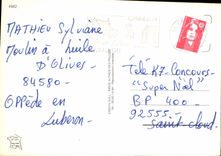 MATHIEU Sylviane
Moulin à huile
D'Olives -
84580 -
OPPÈDE en
Luberon -
Télé K7-Concours-
"Super Noël"
BP 400 -
92555.
Saint-Cloud.